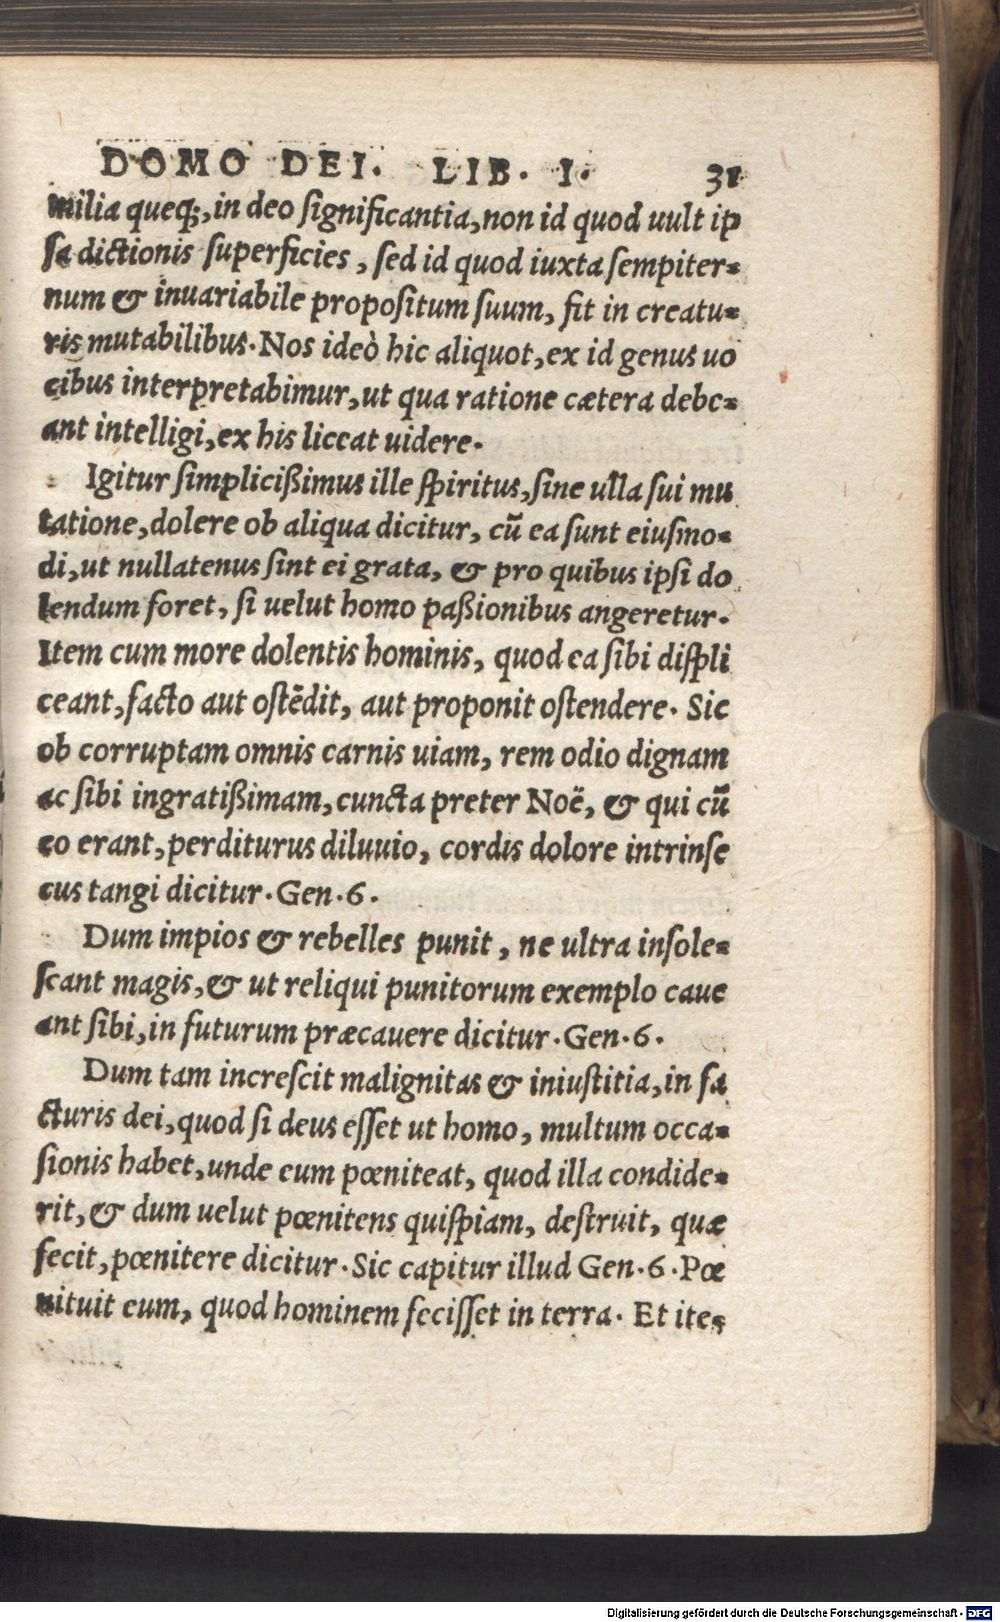 DOMO DEI. LIB. I. 31
milia queq;, in deo significantia, non id quod uult ip
sa dictionis superficies, sed id quod iuxta sempiter-
num & inuariabile propositum suum, fit in creatu-
ris mutabilibus. Nos ideò hic aliquot, ex id genus uo
cibus interpretabimur, ut qua ratione cætera debe-
ant intelligi, ex his liceat uidere.
Igitur simplicißimus ille spiritus, sine ulla sui mu
tatione, dolere ob aliqua dicitur, cū ea sunt eiusmo-
di, ut nullatenus sint ei grata, & pro quibus ipsi do
lendum foret, si uelut homo paßionibus angeretur.
Item cum more dolentis hominis, quod ea sibi displi
ceant, facto aut ostēdit, aut proponit ostendere. Sic
ob corruptam omnis carnis uiam, rem odio dignam
ac sibi ingratißimam, cuncta preter Noë, & qui cū
eo erant, perditurus diluuio, cordis dolore intrinse
cus tangi dicitur. Gen. 6.
Dum impios & rebelles punit, ne ultra insole-
scant magis, & ut reliqui punitorum exemplo caue
ant sibi, in futurum præcauere dicitur. Gen. 6.
Dum tam increscit malignitas & iniustitia, in fa
cturis dei, quod si deus esset ut homo, multum occa-
sionis habet, unde eum pœniteat, quod illa condide-
rit, & dum uelut pœnitens quispiam, destruit, quæ
fecit, pœnitere dicitur. Sic capitur illud Gen. 6. Pœ
nituit eum, quod hominem fecisset in terra. Et ite-
Digitalisierung gefördert durch die Deutsche Forschungsgemeinschaft - DFG